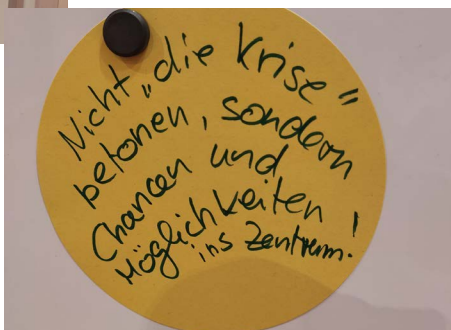 Nicht „die Krise"
betonen, sondern
Chancen und
Möglichkeiten
ins Zentrum!